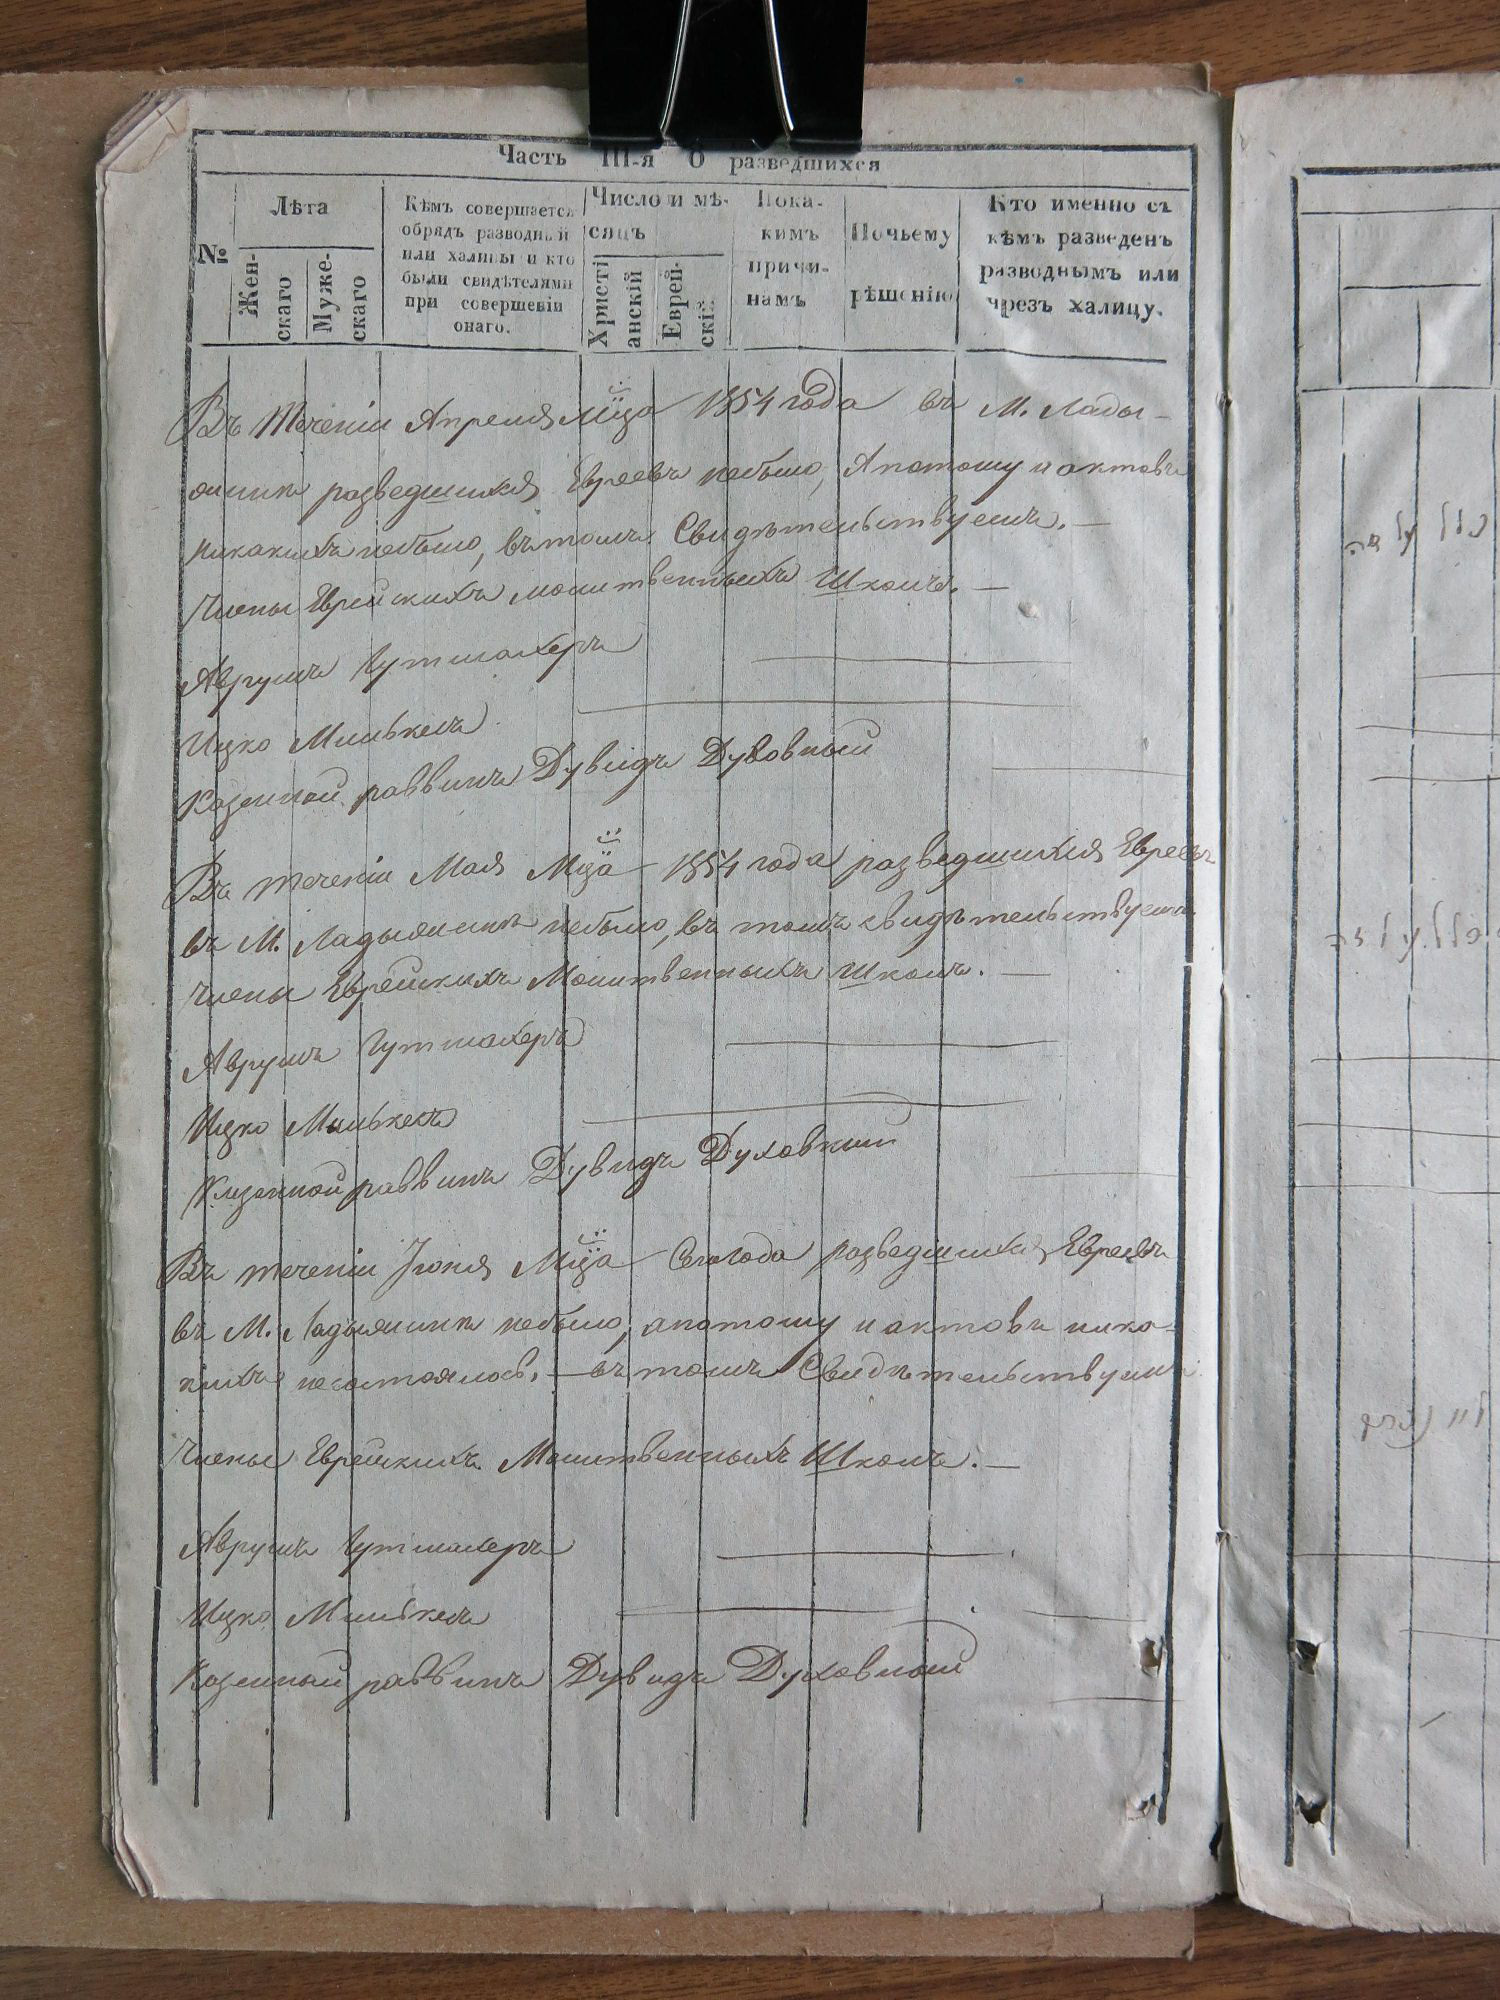 Часть III-я О разведшихся
№
Лѣта
Жен-
скаго
Муже-
скаго
Кѣмъ совершается
обрядъ разводный
или халицы и кто
были свидѣтелями
при совершеніи
онаго.
Число и мѣ-
сяцъ
Христі
анскій
Еврей-
скій.
Пока-
кимъ
причи-
намъ
Почьему
рѣшенію
Кто именно съ
кѣмъ разведенъ
разводнымъ или
чрезъ халицу.
Въ теченіи Апреля Мца 1854 года въ М. Лады-
жинкѣ разведшихся Евреевъ небыло, Апотому и актовъ
никакихъ небыло, въ томъ Свидѣтельствуемъ. —
Члены Еврейскихъ молитвенныхъ Школъ. —
Аврумъ Гутмахеръ
Ицко Милькелъ
Казенный раввинъ Дувидъ Духовный
Въ теченіи Мая Мца 1854 года разведшихся Евреевъ
въ М. Ладыжинкѣ небыло, въ томъ свидѣтельствуемъ
члены Еврейскихъ Молитвенныхъ Школъ. —
Аврумъ Гутмахеръ
Ицко Милькелъ
Казенной раввинъ Дувидъ Духовный
Въ теченіи Іюня Мца Сегогода разведшихся Евреевъ
въ М. Ладыжинкѣ небыло, апотому и актовъ ника-
кихъ несостоялось, — въ томъ Свидѣтельствуемъ
Члены Еврейскихъ Молитвенныхъ Школъ. —
Аврумъ Гутмахеръ
Ицко Милькелъ
Казенный раввинъ Дувидъ Духовный